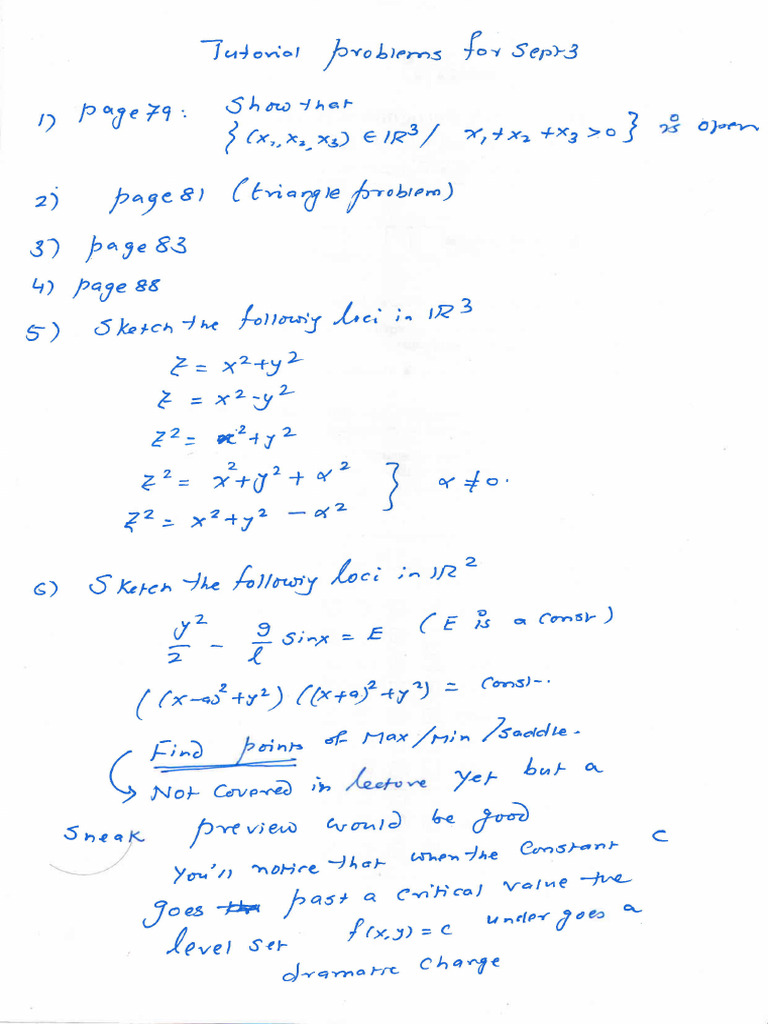 Tutorial problems for Sept 3
1) page 79: Show that
{ (x₁, x₂, x₃) ∈ IR³ / x₁ + x₂ + x₃ > 0 } is open
2) page 81 (triangle problem)
3) page 83
4) page 88
5) Sketch the followig loci in IR³
Z = x² + y²
Z = x² - y²
Z² = x² + y²
Z² = x² + y² + α² } α ≠ 0.
Z² = x² + y² - α²
6) Sketch the followig loci in IR²
y²/2 - g/l Sinx = E (E is a const)
((x-a)² + y²) ((x+a)² + y²) = Const.
Find points of Max/Min/Saddle.
Not Covered in lecture yet but a
Sneak preview would be good
You'll notice that when the Constant C
goes past a critical value the
level set f(x,y) = c undergoes a
dramatic change